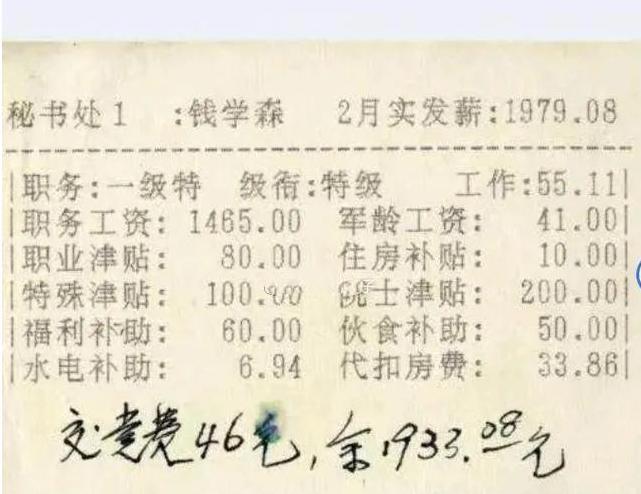 秘书处1 :钱学森 2月实发薪:1979.08
|职务:一级特 级衔:特级 工作:55.11|
|职务工资: 1465.00 军龄工资: 41.00|
|职业津贴: 80.00 住房补贴: 10.00|
|特殊津贴: 100.00 院士津贴: 200.00|
|福利补助: 60.00 伙食补助: 50.00|
|水电补助: 6.94 代扣房费: 33.86|
交党费46元,余1933.08元